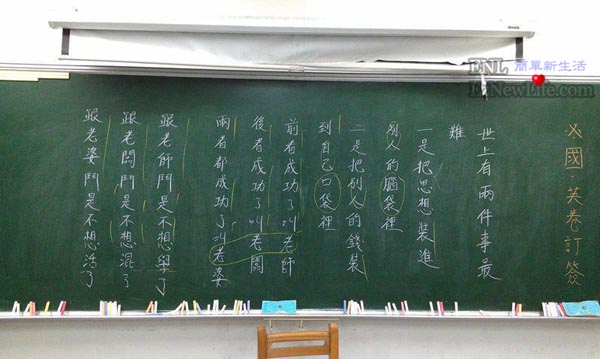 ENL 簡單新生活
EzNewLife.com
必國、英卷訂簽
世上有兩件事最
難
一是把思想裝進
別人的腦袋裡
二是把別人的錢裝
到自己口袋裡
前者成功了叫老師
後者成功了叫老闆
兩者都成功了叫老婆
跟老師鬥是不想學了
跟老闆鬥是不想混了
跟老婆鬥是不想活了